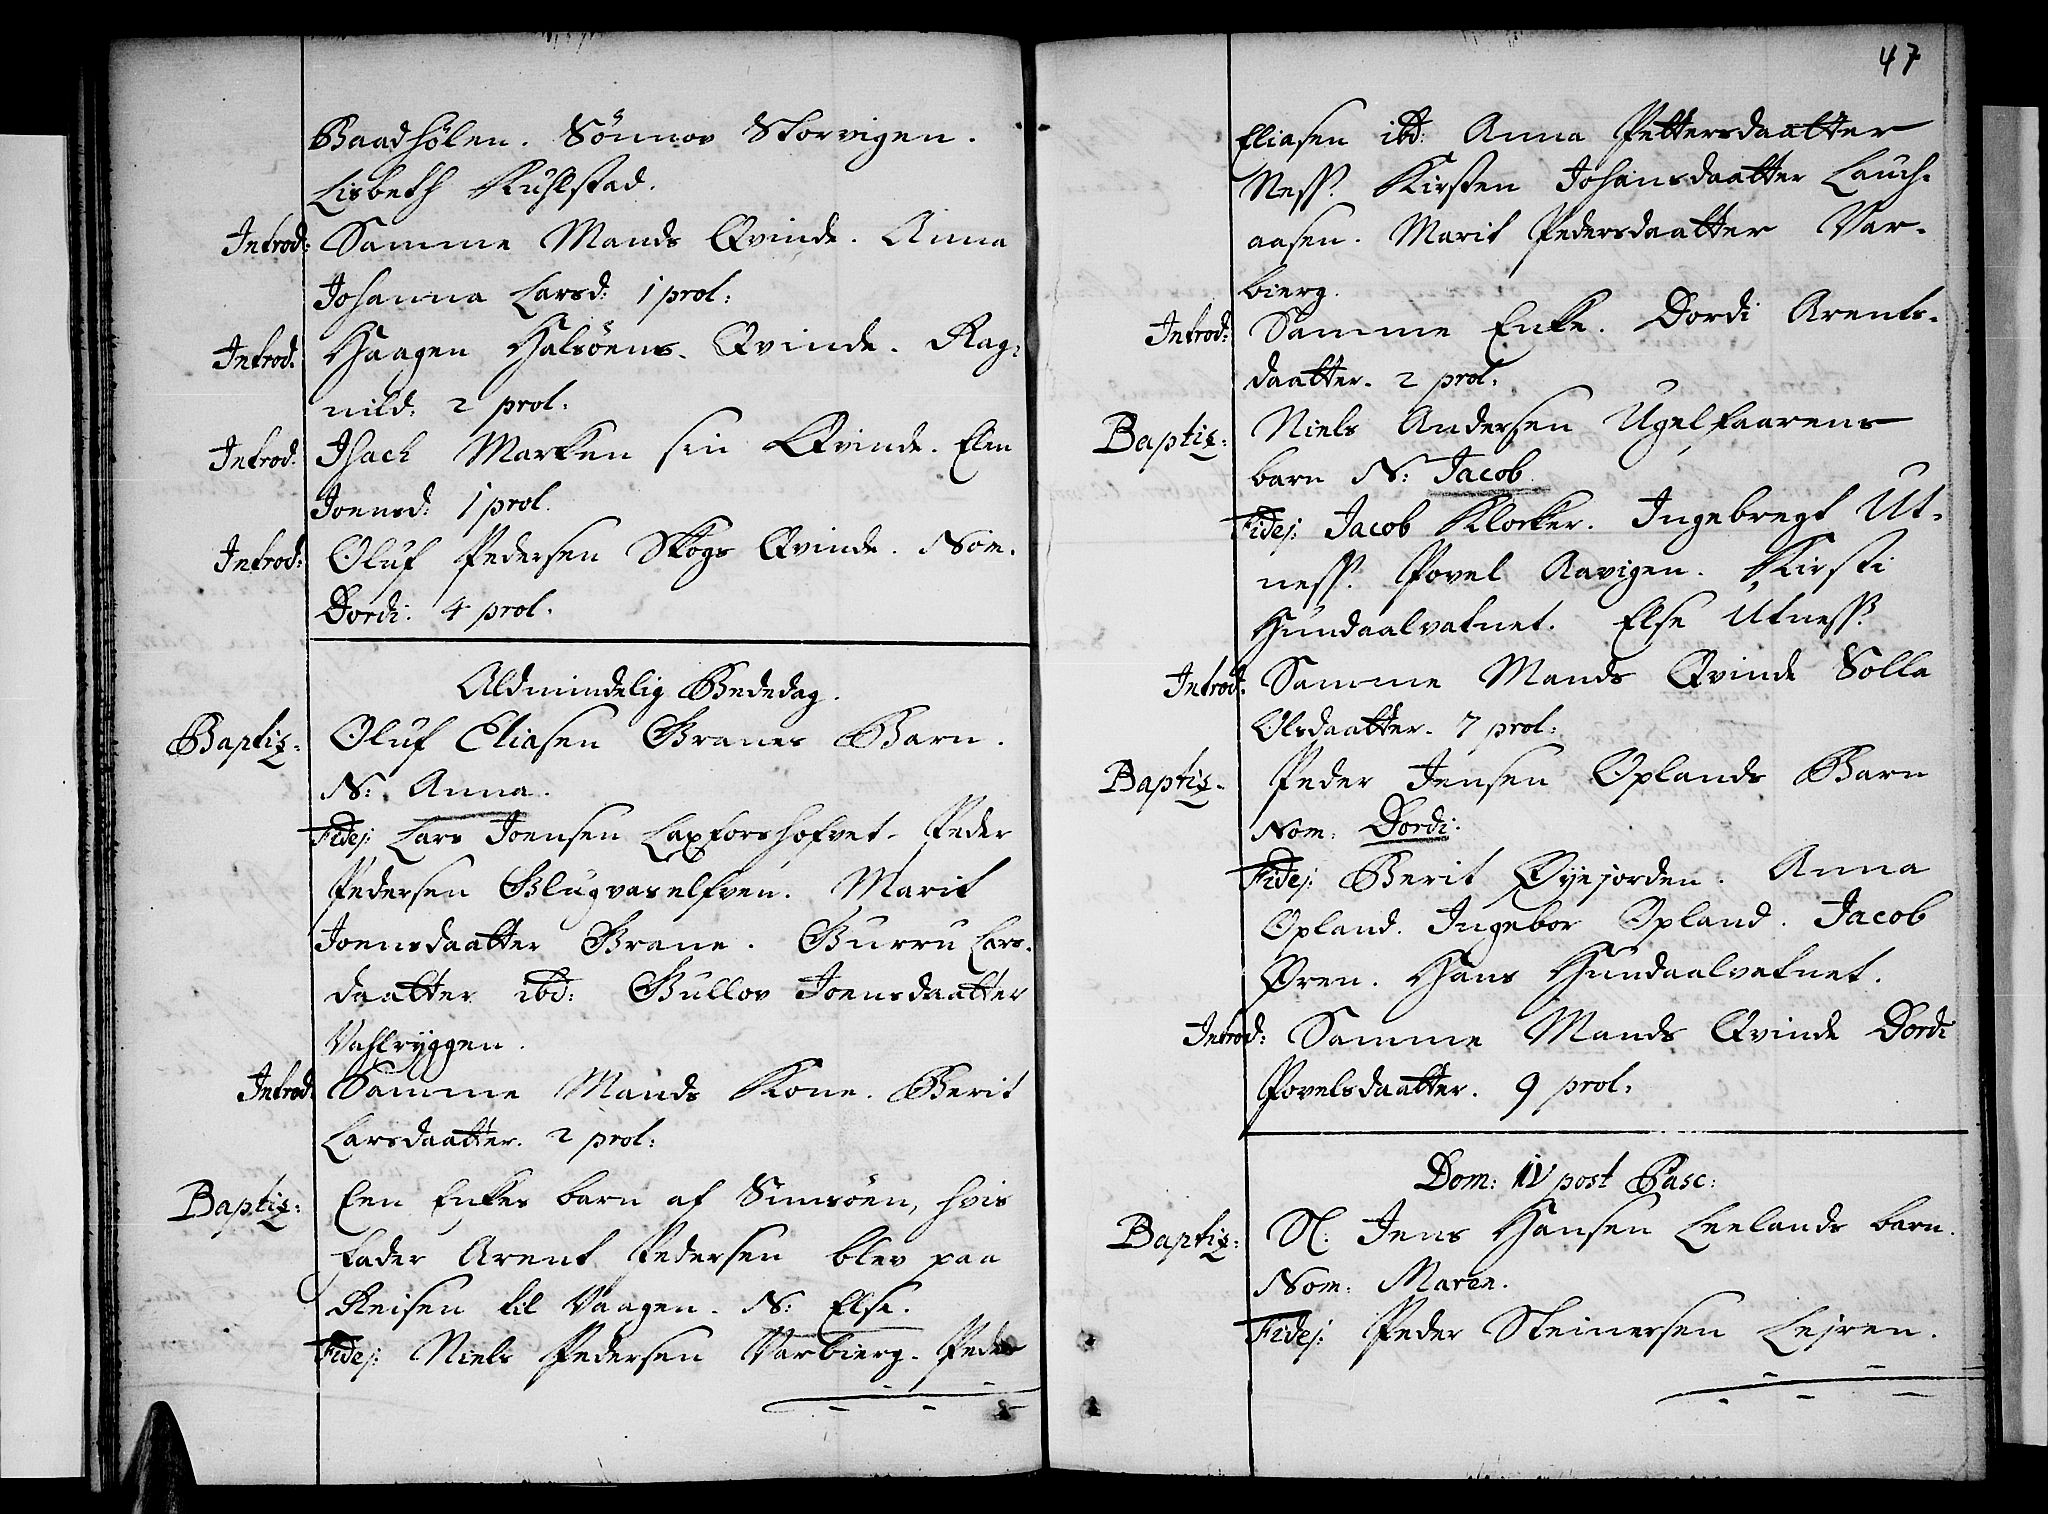 Baadhølen. Sönnov Storvigen.
Lisbeth Kuhlstad.
Introd: Samme Mands Qvinde. Anna
Johanna Larsd: 1 prol:
Introd: Haagen Halsøens Qvinde. Rag-
nild: 2 prol:
Introd: Isach Marken sin Qvinde. Elen
Joensd: 1 prol.
Introd: Oluf Pedersen Skogs Qvinde. Nom.
Dordi: 4 prol.
Aldmindelig Bededag.
Baptiz: Oluf Eliasen Granes Barn.
N: Anna.
Fidej: Lars Joensen Laxforshofvet. Peder
Pedersen Glugvaselfven. Marit
Joensdaatter Grane. Gurru Lars-
daatter ibd: Gullov Joensdaatter
Vahlryggen.
Introd: Samme Mands Kone. Berit
Larsdaatter. 2 prol:
Baptiz: Een Enkes barn af Simsöen, hvis
fader Arent Pedersen blev paa
Reisen til Vaagen. N: Else.
Fidej: Niels Pedersen Varbierg. Peder
47
Eliasen ibd: Anna Pettersdaatter
Ness. Kirsten Johansdaatter Lauch-
aasen. Marit Pedersdaatter Var-
bierg.
Introd: Samme Enke. Dordi Arents-
daatter. 2 prol:
Baptiz: Niels Andersen Ugelfaarens
barn N: Jacob
Fidej: Jacob Klocker. Ingebregt Ut-
ness. Povel Aavigen. Kirsti
Hundaalvatnet. Else Utness.
Introd: Samme Mands Qvinde Solla
Olsdaatter. 7 prol:
Baptiz: Peder Jensen Oplands Barn
Nom: Dordi:
Fidej: Berit Øyejorden. Anna
Opland. Ingebor Opland. Jacob
Øren. Hans Hundaalvetnet.
Introd: Samme Mands Qvinde Dordi
Povelsdaatter. 9 prol:
Dom: IV post Pasc:
Baptiz: Sl: Jens Hansen Leelands barn.
Nom: Maren.
Fidej: Peder Steinersen Lejren.